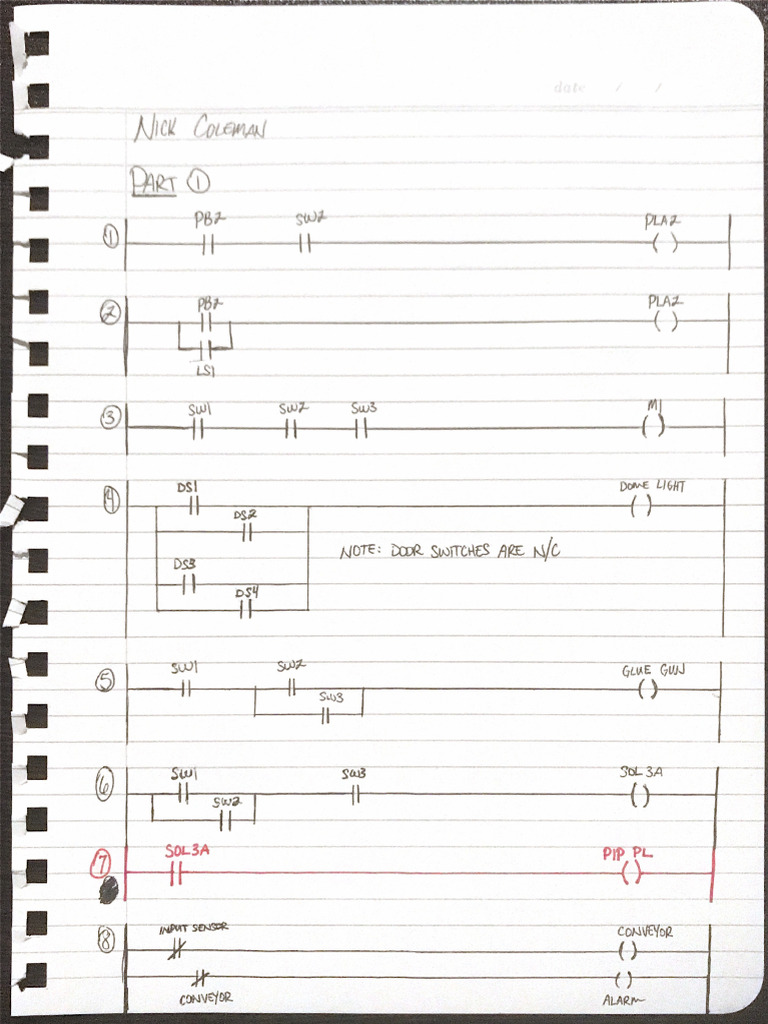 date / /
NICK COLEMAN
PART ①
① PB2 SW2 PLA2
② PB2 PLA2
LS1
③ SW1 SW2 SW3 M1
④ DS1 DOME LIGHT
DS2
NOTE: DOOR SWITCHES ARE N/C
DS3
DS4
⑤ SW1 SW2 GLUE GUN
SW3
⑥ SW1 SW3 SOL 3A
SW2
⑦ SOL3A PIP PL
⑧ INPUT SENSOR CONVEYOR
CONVEYOR ALARM